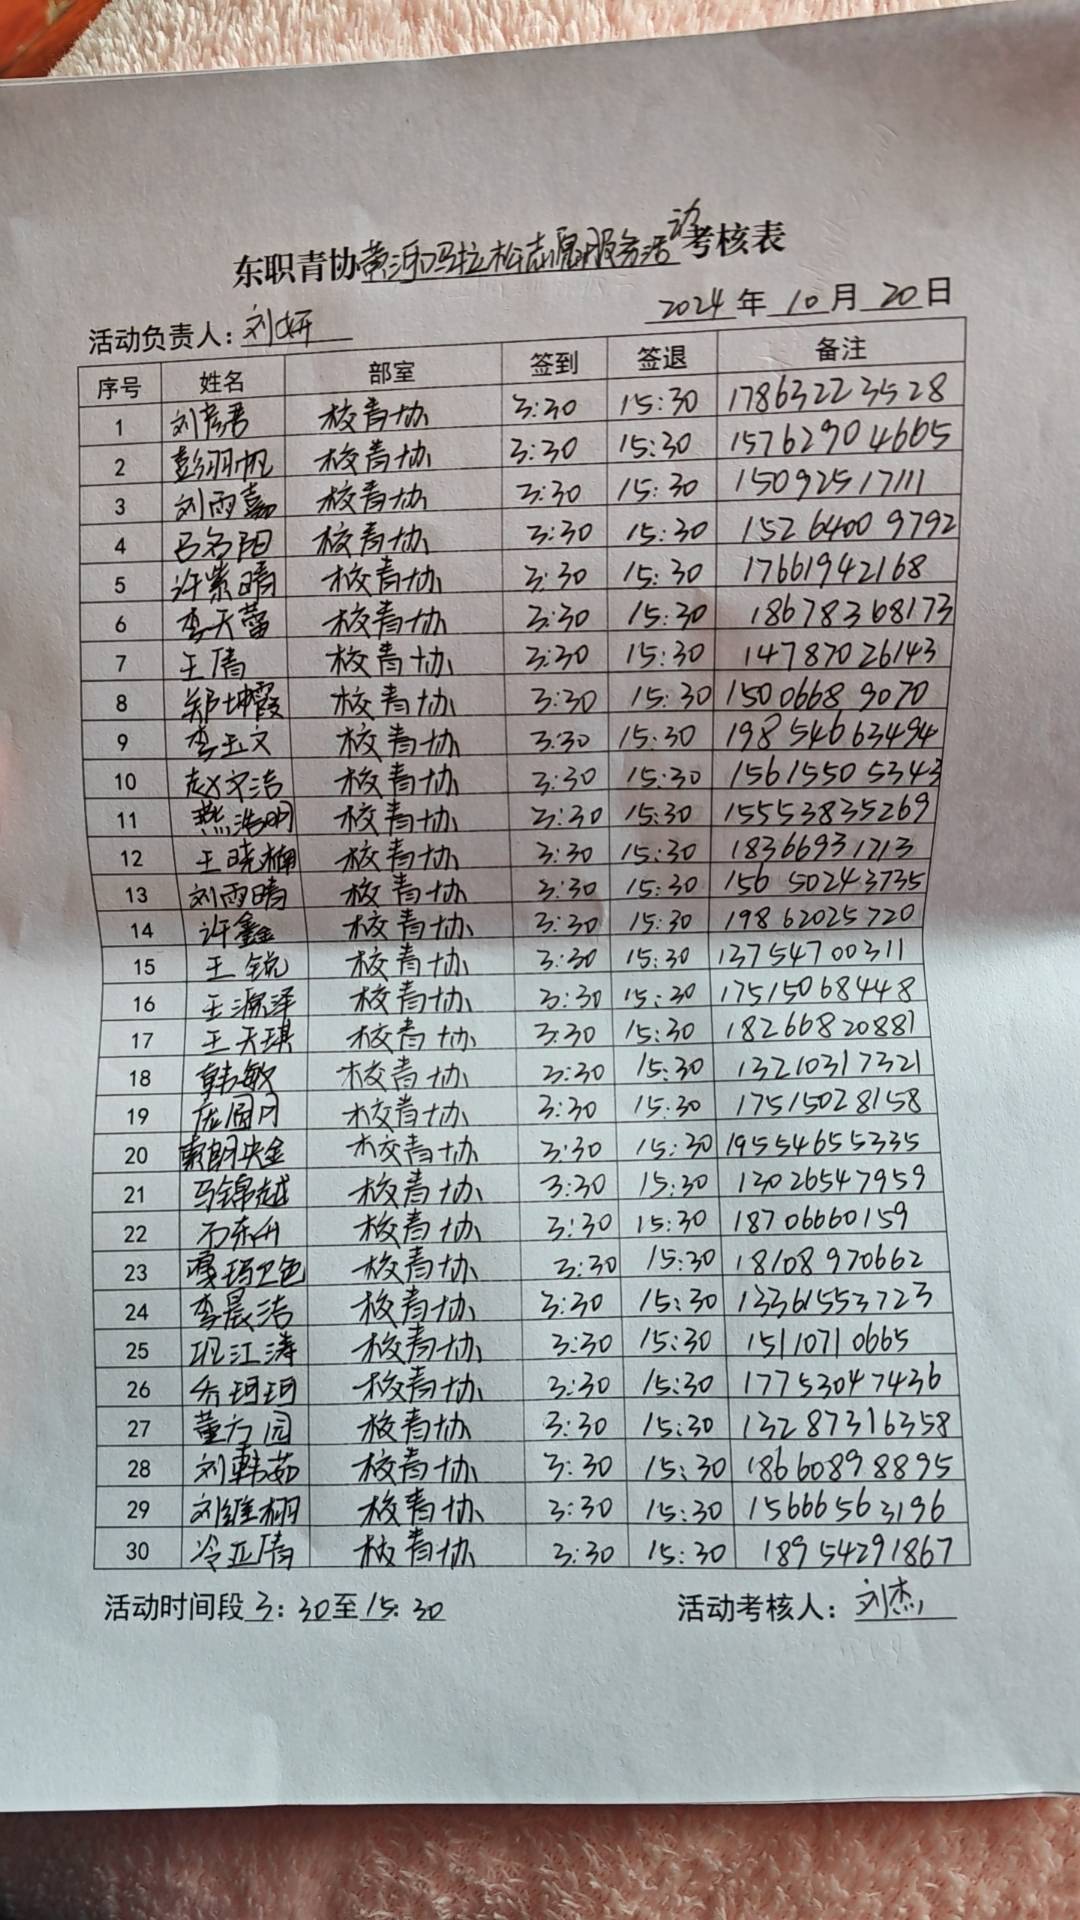 东职青协黄河马拉松志愿服务活动考核表
活动负责人：刘妍 2024年10月20日
序号 姓名 部室 签到 签退 备注
1 刘彦君 校青协 3:30 15:30 17863223528
2 彭羽帆 校青协 3:30 15:30 15762904665
3 刘雨嘉 校青协 3:30 15:30 15092517111
4 吕名阳 校青协 3:30 15:30 15264009792
5 许紫晴 校青协 3:30 15:30 17661942168
6 李天蕾 校青协 3:30 15:30 18678368173
7 王倩 校青协 3:30 15:30 14787026143
8 郑坤霞 校青协 3:30 15:30 15006689070
9 李玉文 校青协 3:30 15:30 19854663494
10 赵文洁 校青协 3:30 15:30 15615505343
11 燕浩明 校青协 3:30 15:30 15553835269
12 王晓楠 校青协 3:30 15:30 18366931713
13 刘雨晴 校青协 3:30 15:30 15650243735
14 许鑫 校青协 3:30 15:30 19862025720
15 王锐 校青协 3:30 15:30 13754700311
16 王源泽 校青协 3:30 15:30 17515068448
17 王天琪 校青协 3:30 15:30 18266820881
18 韩敏 校青协 3:30 15:30 13210317321
19 校青协 3:30 15:30 17515028158
20 索朗央金 校青协 3:30 15:30 19554655335
21 马锦越 校青协 3:30 15:30 13026547959
22 石东升 校青协 3:30 15:30 18706660159
23 嘎玛卫色 校青协 3:30 15:30 18108970662
24 李晨洁 校青协 3:30 15:30 13361553723
25 巩江涛 校青协 3:30 15:30 15110710665
26 乔珂珂 校青协 3:30 15:30 17753047436
27 董方园 校青协 3:30 15:30 13287316358
28 刘韩茹 校青协 3:30 15:30 18660898895
29 刘维栩 校青协 3:30 15:30 15666563196
30 冷亚倩 校青协 3:30 15:30 18954291867
活动时间段3:30至15:30 活动考核人：刘杰